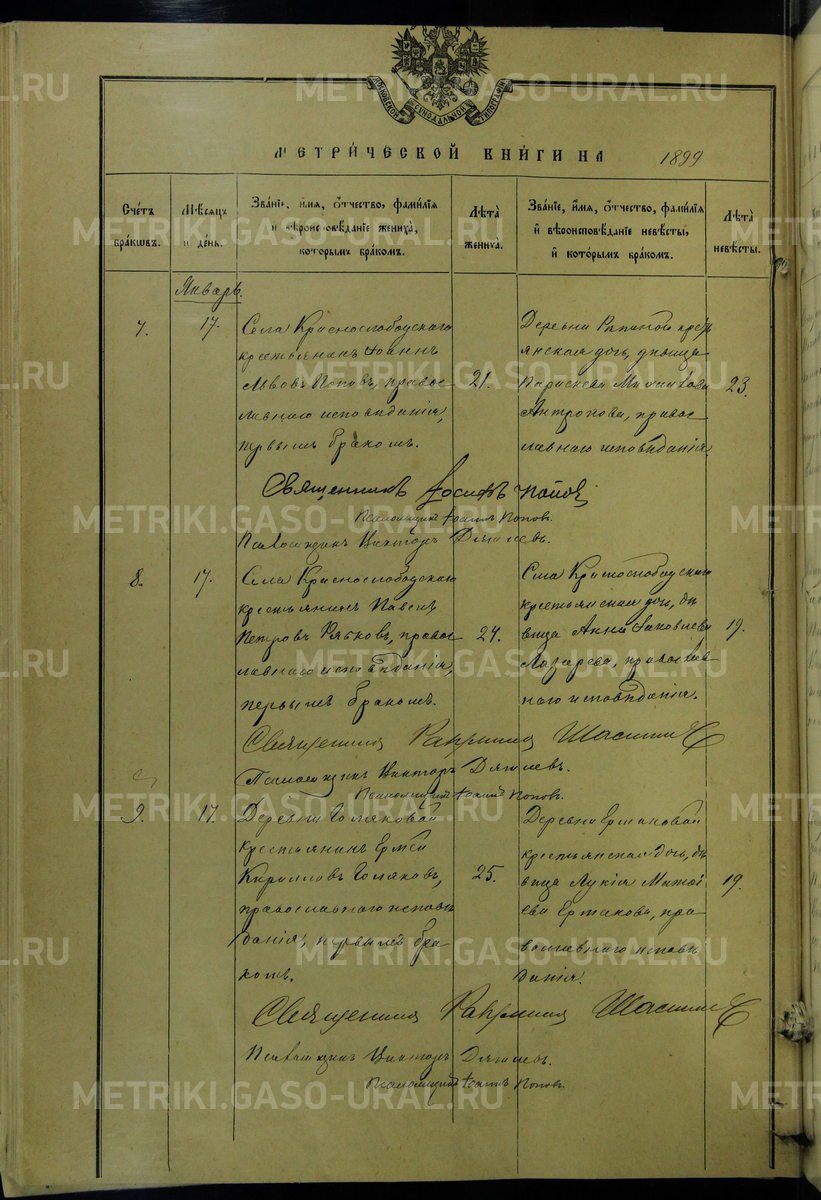 МЕТРИ́ЧЕСКОЙ КНИ́ГИ НА 1899
Сче́тъ бра́кѡвъ.
Мѣ́сяцъ и де́нь.
Зва́нїе, и́мя, ѻ́тчество, фами́лїя и вѣроисповѣ́данїе жениха̀, и кото́рымъ бра́комъ.
Лѣ́та жениха̀.
Зва́нїе, и́мя, ѻ́тчество, фами́лїя и҆ вѣроисповѣ́данїе невѣ́сты, и҆ кото́рымъ бра́комъ.
Лѣ́та невѣ́сты.
Январь.
7.
17.
Села Краснослободскаго
крестьянинъ Іоаннъ
Львовъ Поповъ, правос
лавнаго исповѣданія,
первымъ бракомъ.
21.
Деревни крестъ
янская дочь, дѣвица
Параскева Михайлова
Антропова, правос
лавнаго исповѣданія.
23.
Священникъ Іосифъ Попов
Псаломщикъ Іоаннъ Поповъ.
Псаломщикъ Викторъ Дягилевъ.
8.
17.
Села Краснослободскаго
крестьянинъ Павелъ
Петровъ Рябковъ, правос
лавнаго исповѣданія,
первымъ бракомъ.
24.
Села Краснослободскаго
крестьянская дочь, дѣ
вица Анна Іаковлева
Лазарева, православ
наго исповѣданія.
19.
Священникъ
Псаломщикъ Викторъ Дягилевъ.
Псаломщикъ Іоаннъ Поповъ.
9.
17.
Деревни Голяковой
крестьянинъ Ермей
Кирилловъ Голяковъ,
православнаго исповѣ
данія, первымъ бра
комъ.
25.
Деревни Ермаковой
крестьянская дочь, дѣ
вица Лукія Матѳ
ева Ермакова, пра
вославнаго исповѣ
данія.
19.
Священникъ
Псаломщикъ Викторъ Дягилевъ.
Псаломщикъ Іоаннъ Поповъ.
METRIKI.GASO-URAL.RU